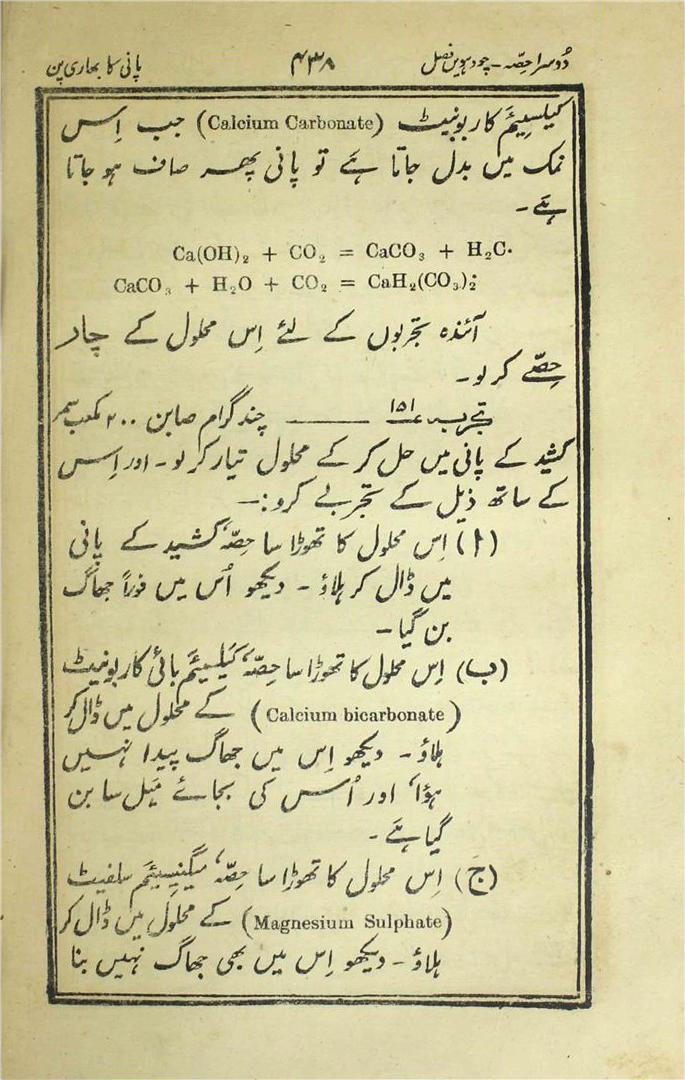 دُوسرا حِصّہ ۔ چودہویں فصل ۴۳۸ پانی کا بھاری پن
کیلسِیئَم کاربونیٹ (Calcium Carbonate) جب اِس
نمک میں بدل جاتا ہَے تو پانی پھر صاف ہو جاتا
ہَے ۔
Ca(OH)₂ + CO₂ = CaCO₃ + H₂C.
CaCO₃ + H₂O + CO₂ = CaH₂(CO₃)₂:
آئندہ تجربوں کے لئے اِس محلول کے چار
حِصّے کر لو ۔
تجربہ ۱۵۱ ــــــ چند گرام صابن ۲۰۰ مکعب سمر
کشید کے پانی میں حل کر کے محلول تیار کر لو ۔ اور اِس
کے ساتھ ذیل کے تجربے کرو :—
(ا) اِس محلول کا تھوڑا سا حِصّہ، کشید کے پانی
میں ڈال کر ہلاؤ ۔ دیکھو اُس میں فوراً جھاگ
بن گیا ۔
(ب) اِس محلول کا تھوڑا سا حِصّہ، کَیلسِیئَم بائی کاربونیٹ
(Calcium bicarbonate) کے محلول میں ڈال کر
ہلاؤ ۔ دیکھو اِس میں جھاگ پیدا نہیں
ہؤا، اور اُس کی بجائے مَیل سا بن
گیا ہَے ۔
(ج) اِس محلول کا تھوڑا سا حِصّہ، میگنیسِیئَم سلفیٹ
(Magnesium Sulphate) کے محلول میں ڈال کر
ہلاؤ ۔ دیکھو اِس میں بھی جھاگ نہیں بنا